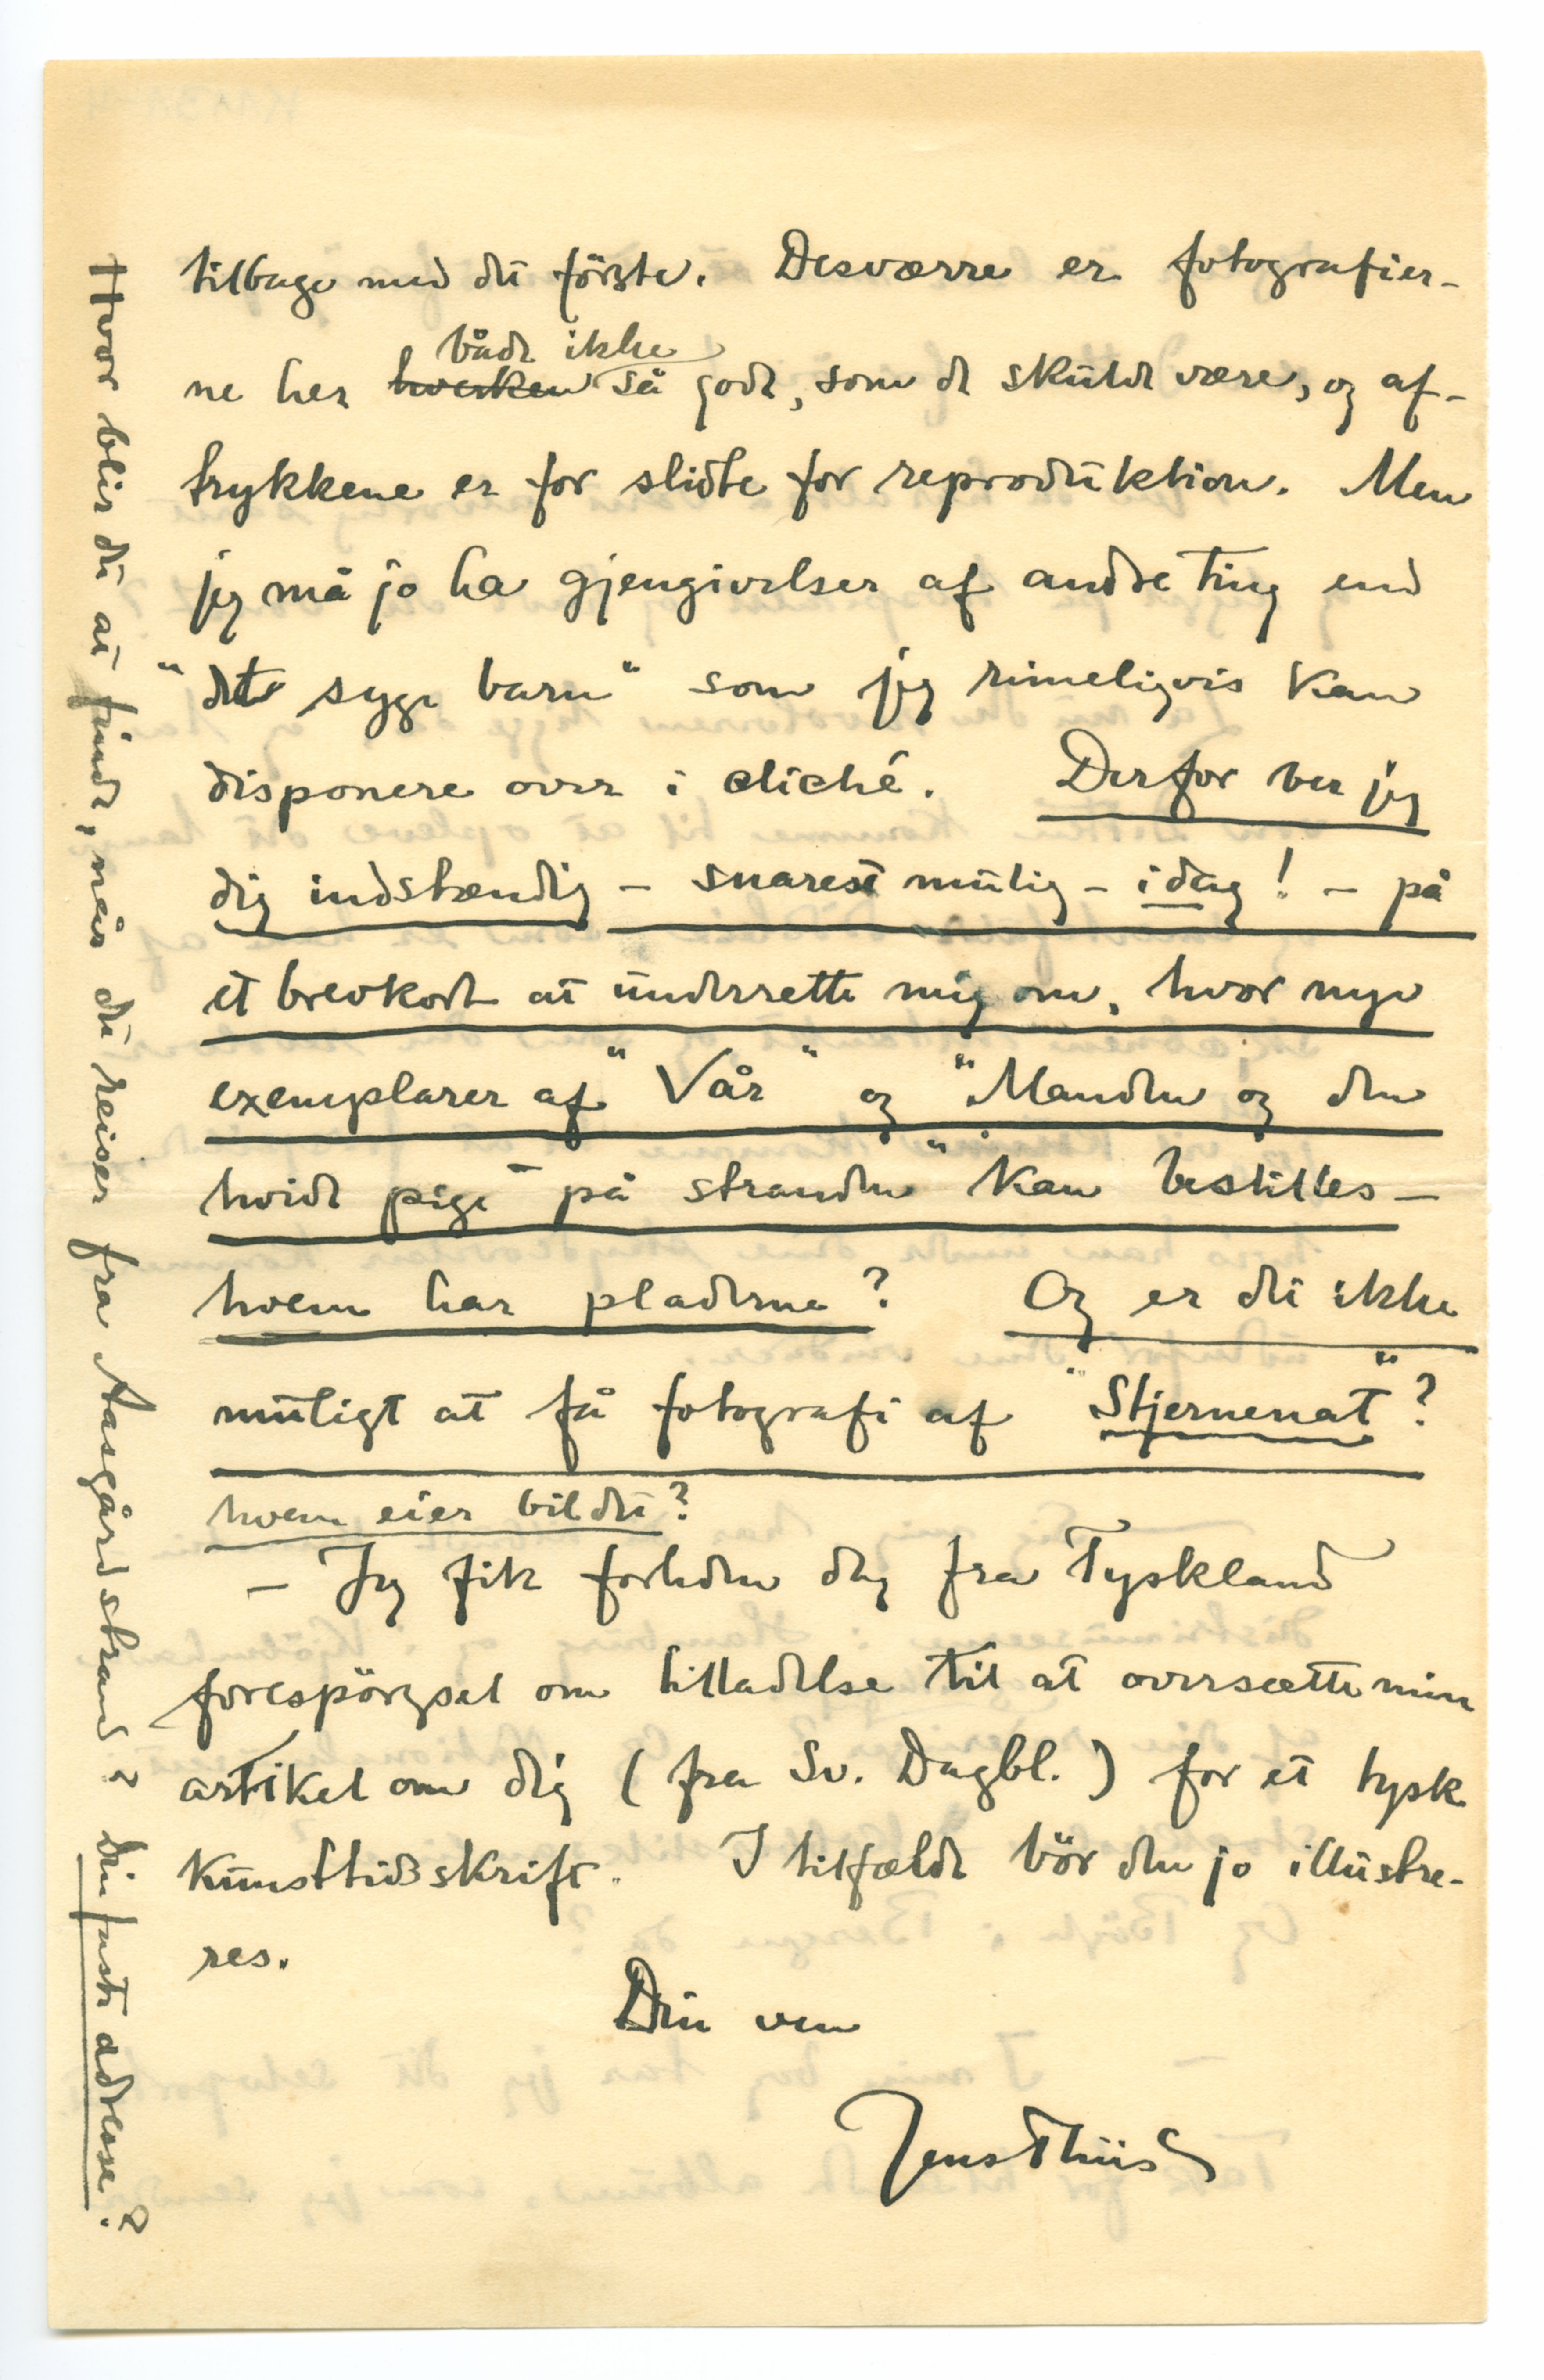 tilbage med det förste. Desværre er fotografier-
ne her hverken både ikke så gode, som de skulde være, og af-
trykkene er for slidte for reproduktion. Men
jeg må jo ha gjengivelser af andre ting end
"det syge barn" som jeg rimeligvis kan
disponere over i cliché. Derfor ber jeg
dig indstændig – snarest mulig – idag! – på
et brevkort at underrette mig om, hvor nye
exemplarer af "Vår" og "Manden og den
hvide pige på stranden" kan bestilles –
hvem har pladerne? Og er det ikke
muligt at få fotografi af "Stjernenat"?
hvem eier bildet?
– Jeg fik forleden dag fra Tyskland
forespörgsel om tilladelse til at oversætte min
artikel om dig (fra Sv. Dagbl.) for et tysk
kunsttidsskrift. I tilfælde bör den jo illustre-
res.
Din ven
Jens Thiis
Hvor blir du at finde, når du reiser fra Aasgårdstrand? Din faste adresse?